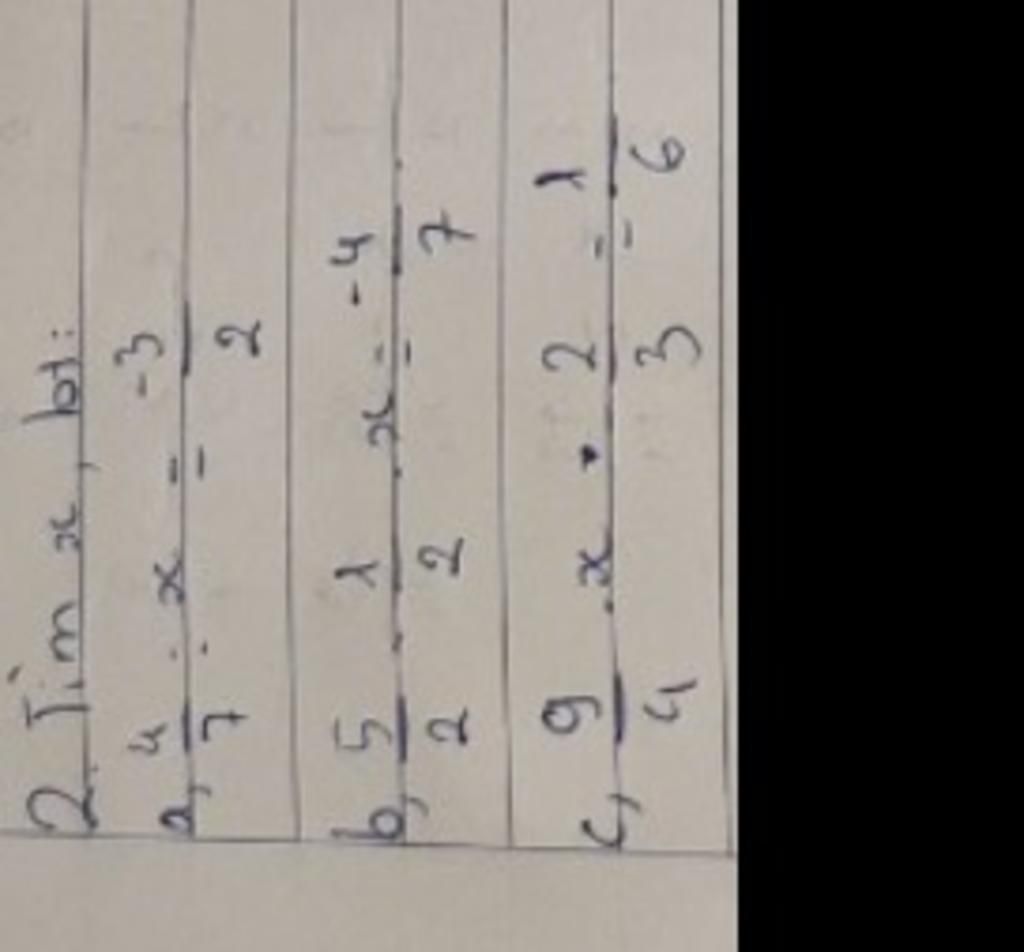 2. Tìm x, bt:
a, 4/7 : x = -3/2
b, 5/2 . 1/2 . x = -4/7
c, 9/4 . x . 2/3 = 1/6